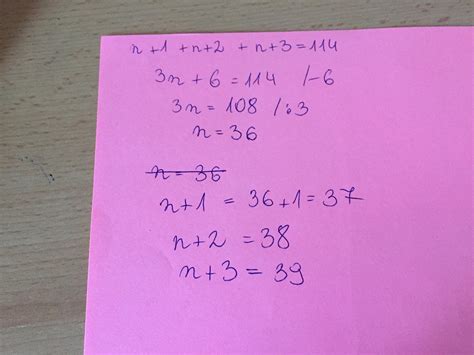 n+1 +n+2 + n+3=114
3n + 6 = 114 /-6
3n = 108 /:3
n = 36
n = 36
n+1 = 36+1=37
n+2 = 38
n+3 = 39